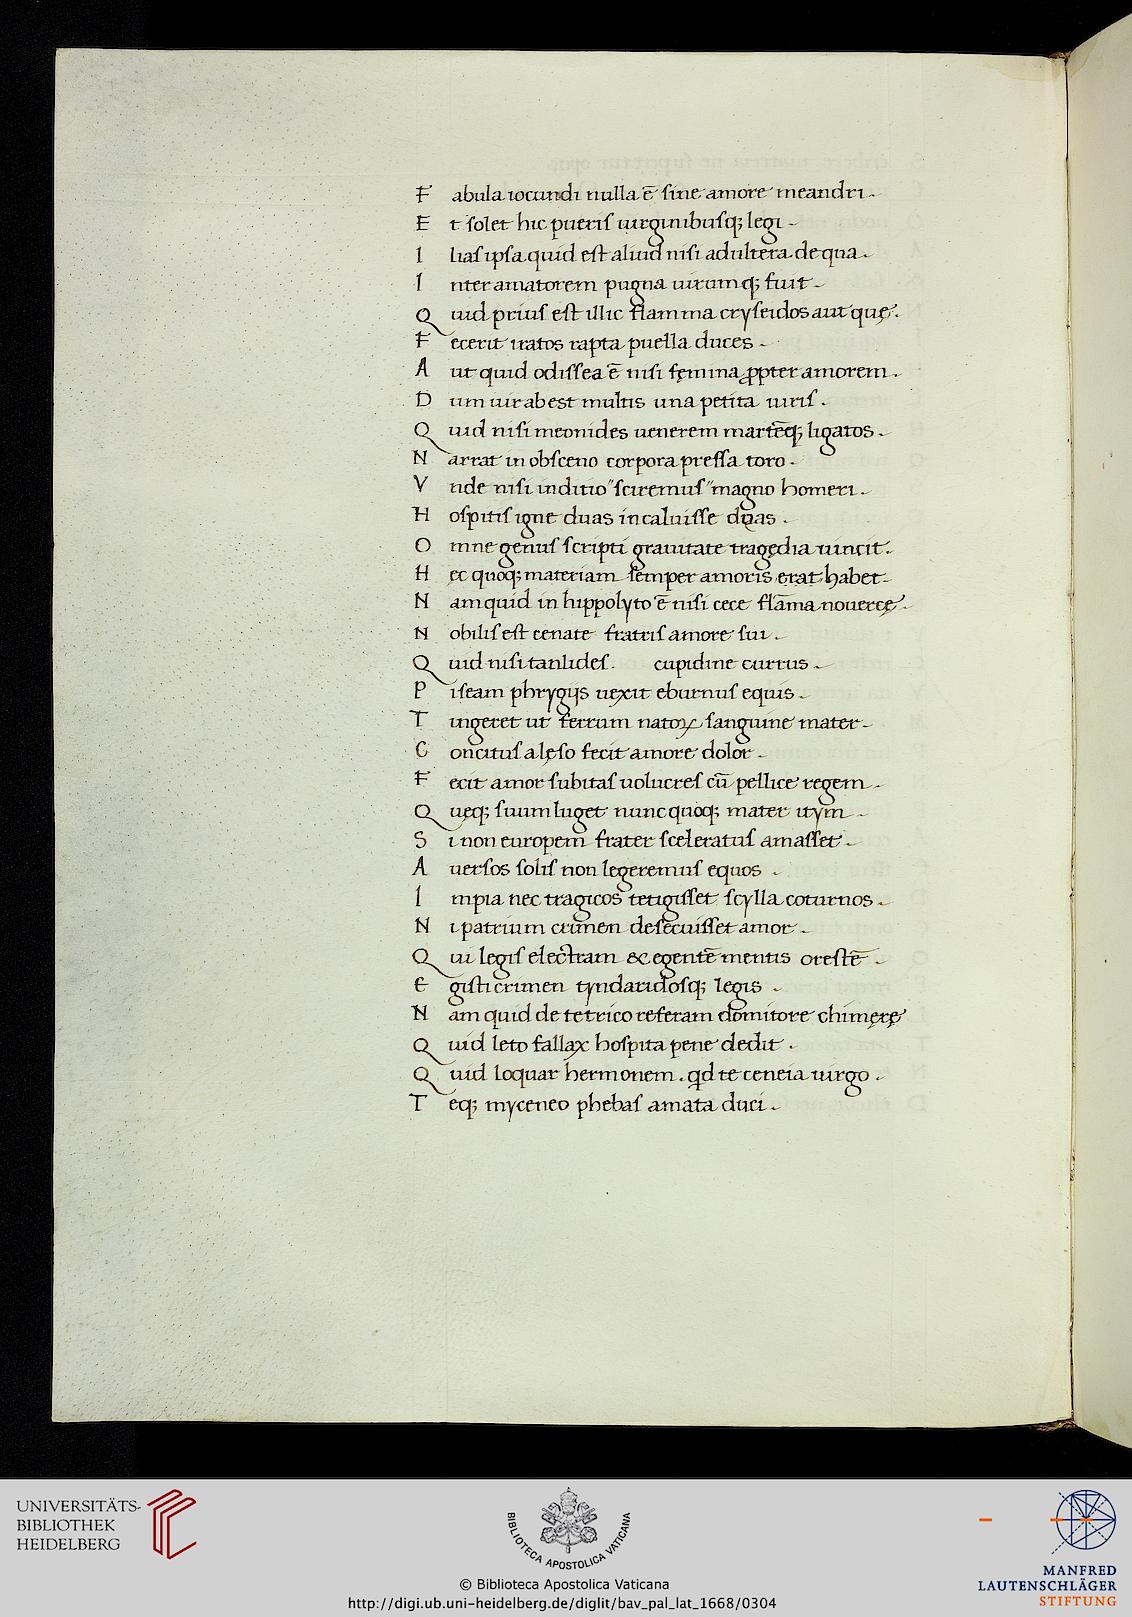 F abula iocundi nulla ē sine amore meandri.
E t solet hic pueris uirginibusq; legi.
I lias ipsa quid est aliud nisi adultera de qua.
I nter amatorem pugna uirumq; fuit.
Q uid prius est illic flamma cryseidos aut quę.
F ecerit iratos rapta puella duces.
A ut quid odissea ē nisi fęmina ꝓpter amorem.
D um uir abest multis una petita uiris.
Q uid nisi meonides uenerem martēq; ligatos.
N arrat in obsceno corpora pressa toro.
V nde nisi inditio "sciremus" magno homeri.
H ospitis igne duas incaluisse duas.
O mne genus scripti grauitate tragędia uincit.
H ęc quoq; materiam semper amoris erat habet.
N am quid in hippolyto ē nisi cece flāma nouercę.
N obilis est cenate fratris amore sui.
Q uid nisi tanlides. cupidine currus.
P iseam phrygijs uexit eburnus equis.
T ingeret ut ferrum natoꝝ sanguine mater.
C oncitus a lęso fecit amore dolor.
F ecit amor subitas uolucres cū pellice regem.
Q ueq; suum luget nunc quoq; mater itym.
S i non europem frater sceleratus amasset.
A uersos solis non legeremus equos.
I mpia nec tragicos tetigisset scylla coturnos.
N i patrium crimen desecuisset amor.
Q ui legis electram & egentē mentis orestē.
E gisti crimen tyndaridosq; legis.
N am quid de tetrico referam domitore chimęrę
Q uid leto fallax hospita pene dedit.
Q uid loquar hermonem. qd te ceneia uirgo.
T eq; myceneo phebas amata duci.
UNIVERSITÄTS-
BIBLIOTHEK
HEIDELBERG
BIBLIOTECA APOSTOLICA VATICANA
© Biblioteca Apostolica Vaticana
http://digi.ub.uni-heidelberg.de/diglit/bav_pal_lat_1668/0304
MANFRED
LAUTENSCHLÄGER
STIFTUNG